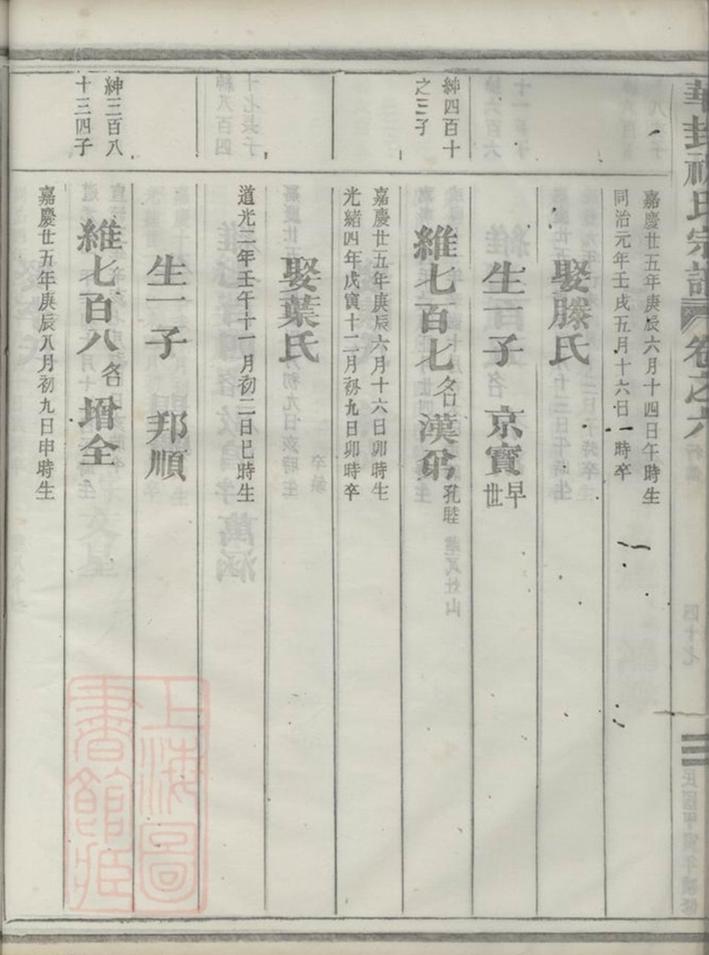 華封祝氏宗譜 卷之六
嘉慶廿五年庚辰六月十四日午時生
同治元年壬戌五月十六日 時卒
娶滕氏
生一子 京寶 早世
紳四百十
之三子
維七百七 名漢弟 孔睦
嘉慶廿五年庚辰六月十六日卯時生
光緒四年戊寅十二月初九日卯時卒
娶葉氏
道光二年壬午十一月初二日巳時生
生一子 邦順
紳三百八
十三四子
維七百八 名增全
嘉慶廿五年庚辰八月初九日申時生
四十七
上海圖
書館藏